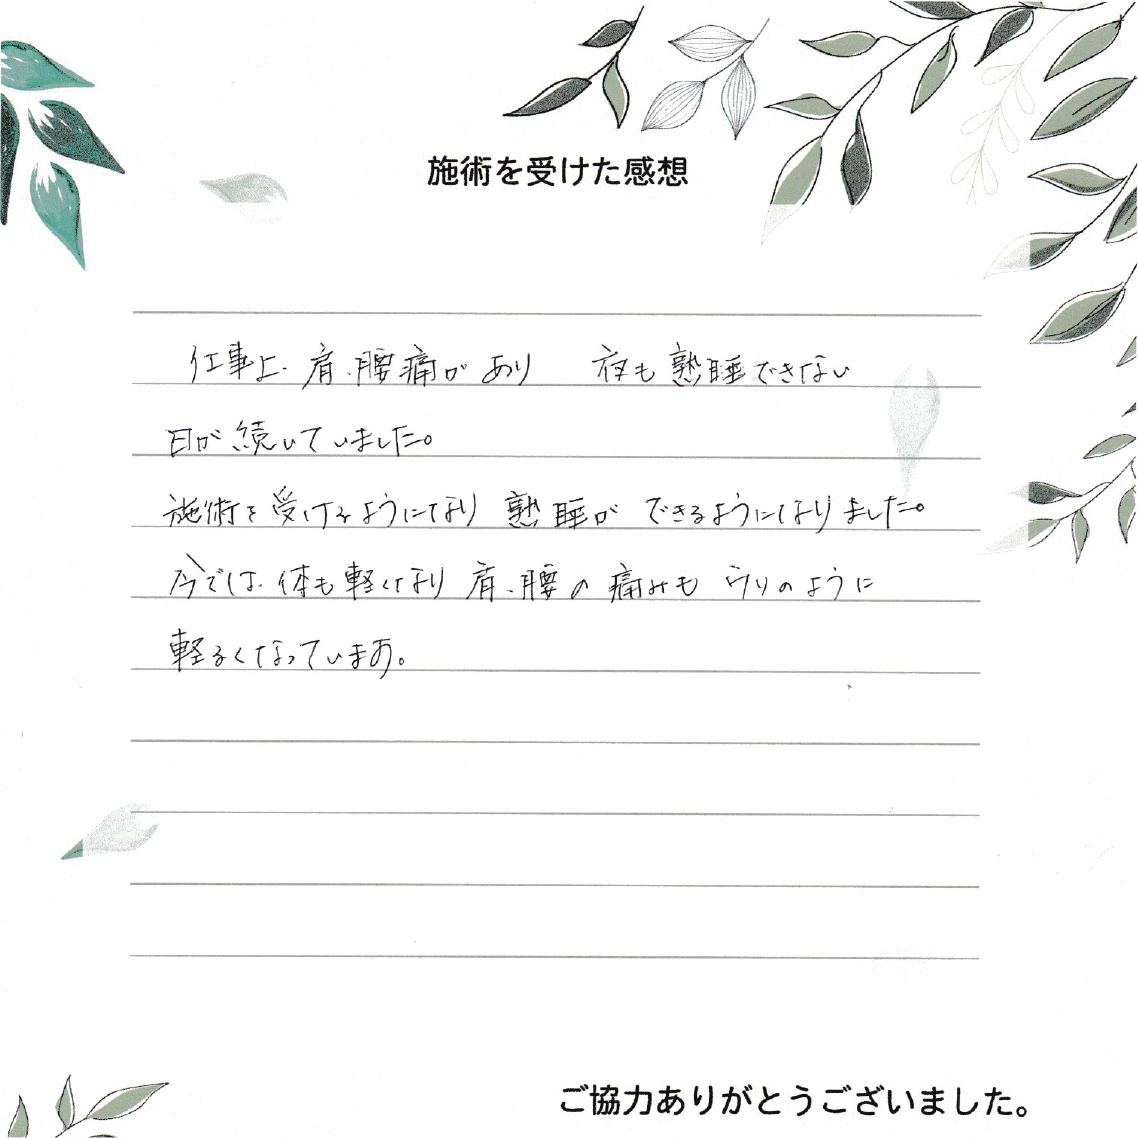 施術を受けた感想
仕事上、肩、腰痛があり 夜も熟睡できない
日が続いていました。
施術を受けるようになり熟睡ができるようになりました。
今では、体も軽くなり肩、腰の痛みもウソのように
軽るくなっています。
ご協力ありがとうございました。